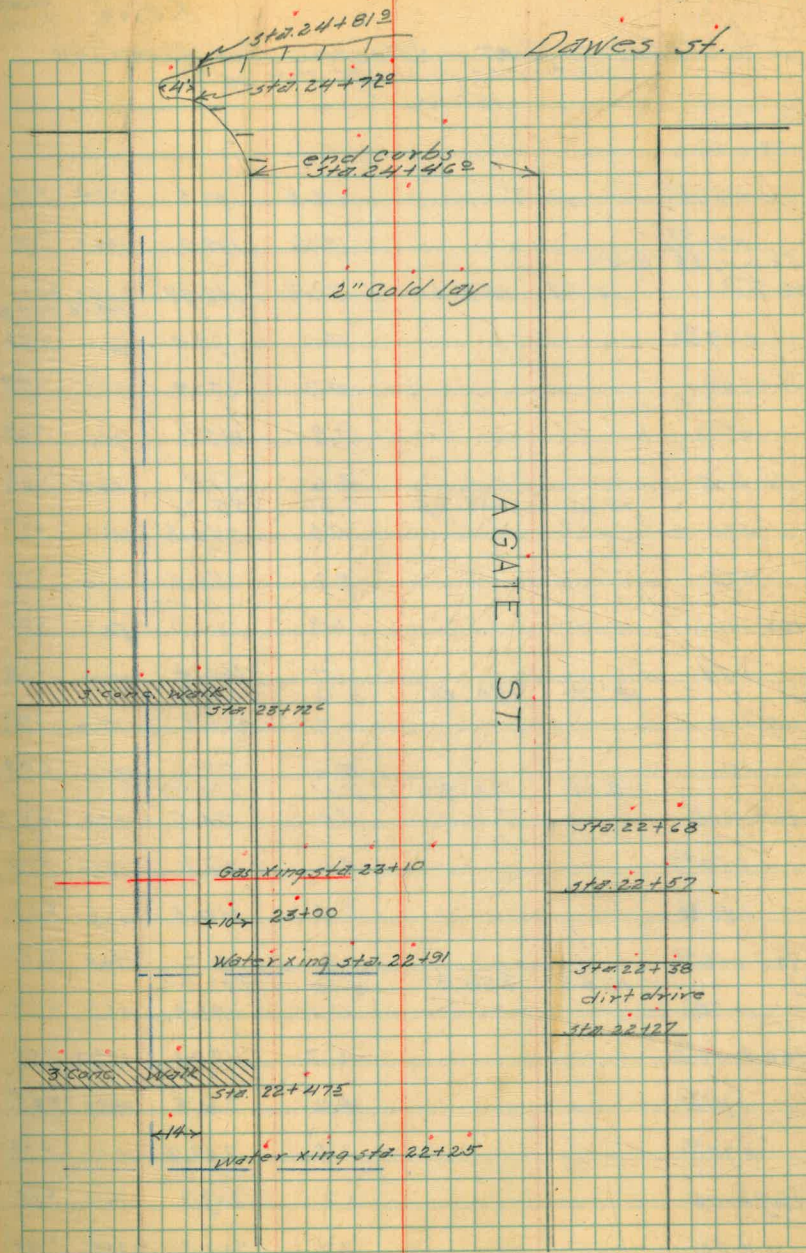 sta. 24+81⁹
Dawes st.
4'
sta. 24+72⁹
end corbs
sta. 24+46⁹
2" Cold lay
AGATE ST.
3' conc. walk
sta. 23+72⁶
sta. 22+68
Gas xing sta. 23+10
sta. 22+57
10'
23+00
Water xing sta. 22+91
sta. 22+38
dirt drive
sta. 22+27
3' conc. Walk
sta. 22+47⁵
14
water xing sta. 22+25